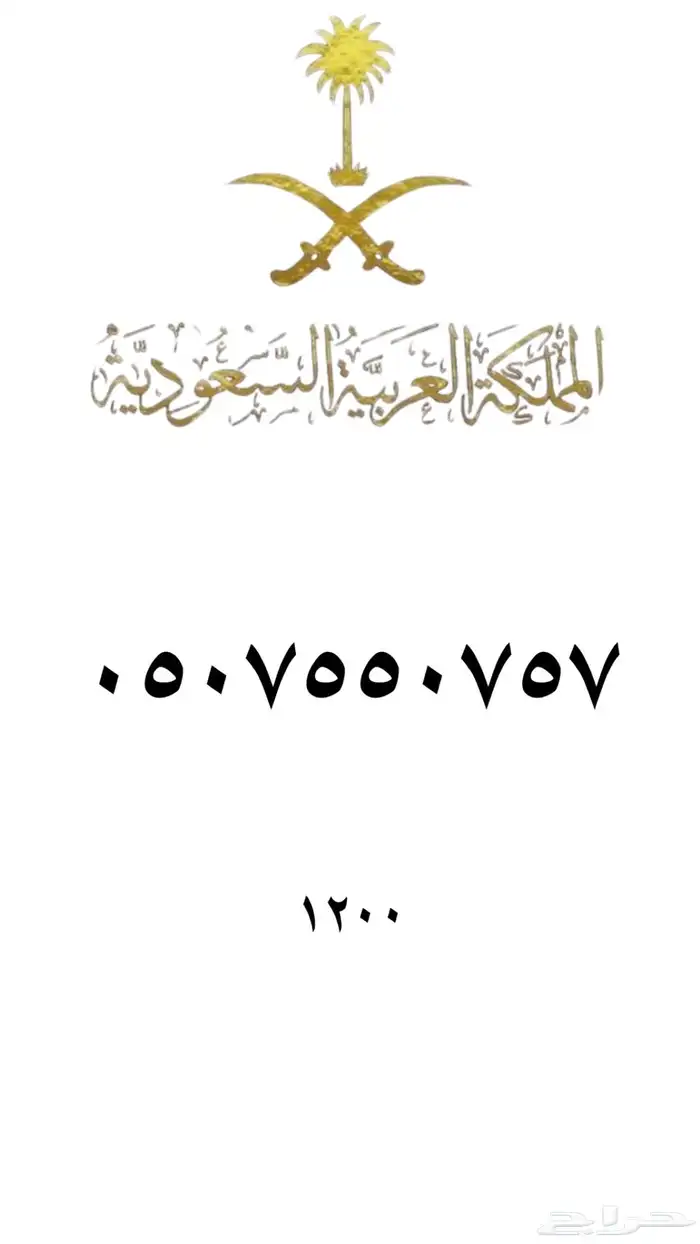 المملكة العربية السعودية
٠٥٠٧٥٥٠٧٥٧
١٢٠٠
حراج